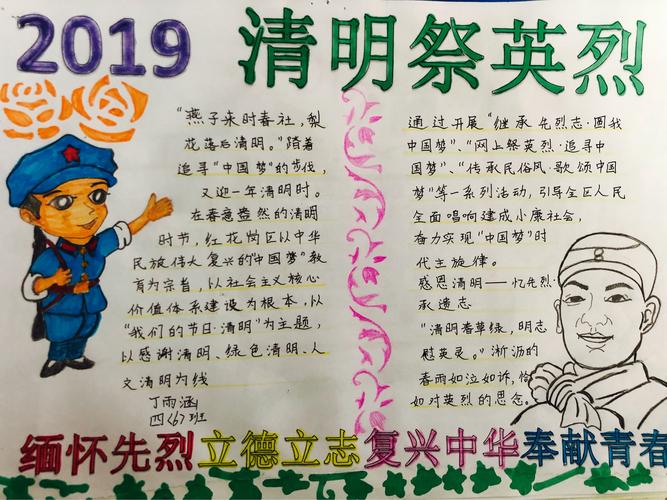 2019 清明祭英烈
"燕子来时春社,梨
花落后清明。"踏着
追寻"中国梦"的步伐,
又迎一年清明时。
在春意盎然的清明
时节,红花岗区以中华
民族伟大复兴的"中国梦"教
育为宗旨,以社会主义核心
价值体系建设为根本,以
"我们的节日·清明"为主题,
以感谢清明、绿色清明、人
文清明为线
丁雨涵
四<6>班
通过开展"继承先烈志·圆我
中国梦"、"网上祭英烈·追寻中
国梦"、"传承民俗风·歌颂中国
梦"等一系列活动,引导全区人民
全面唱响建成小康社会,
奋力实现"中国梦"时
代主旋律。
感恩清明——忆先烈·
承遗志
"清明春草绿,明志
慰英灵。"淅沥的
春雨如泣如诉,恰
如对英烈的思念。
缅怀先烈立德立志复兴中华奉献青春